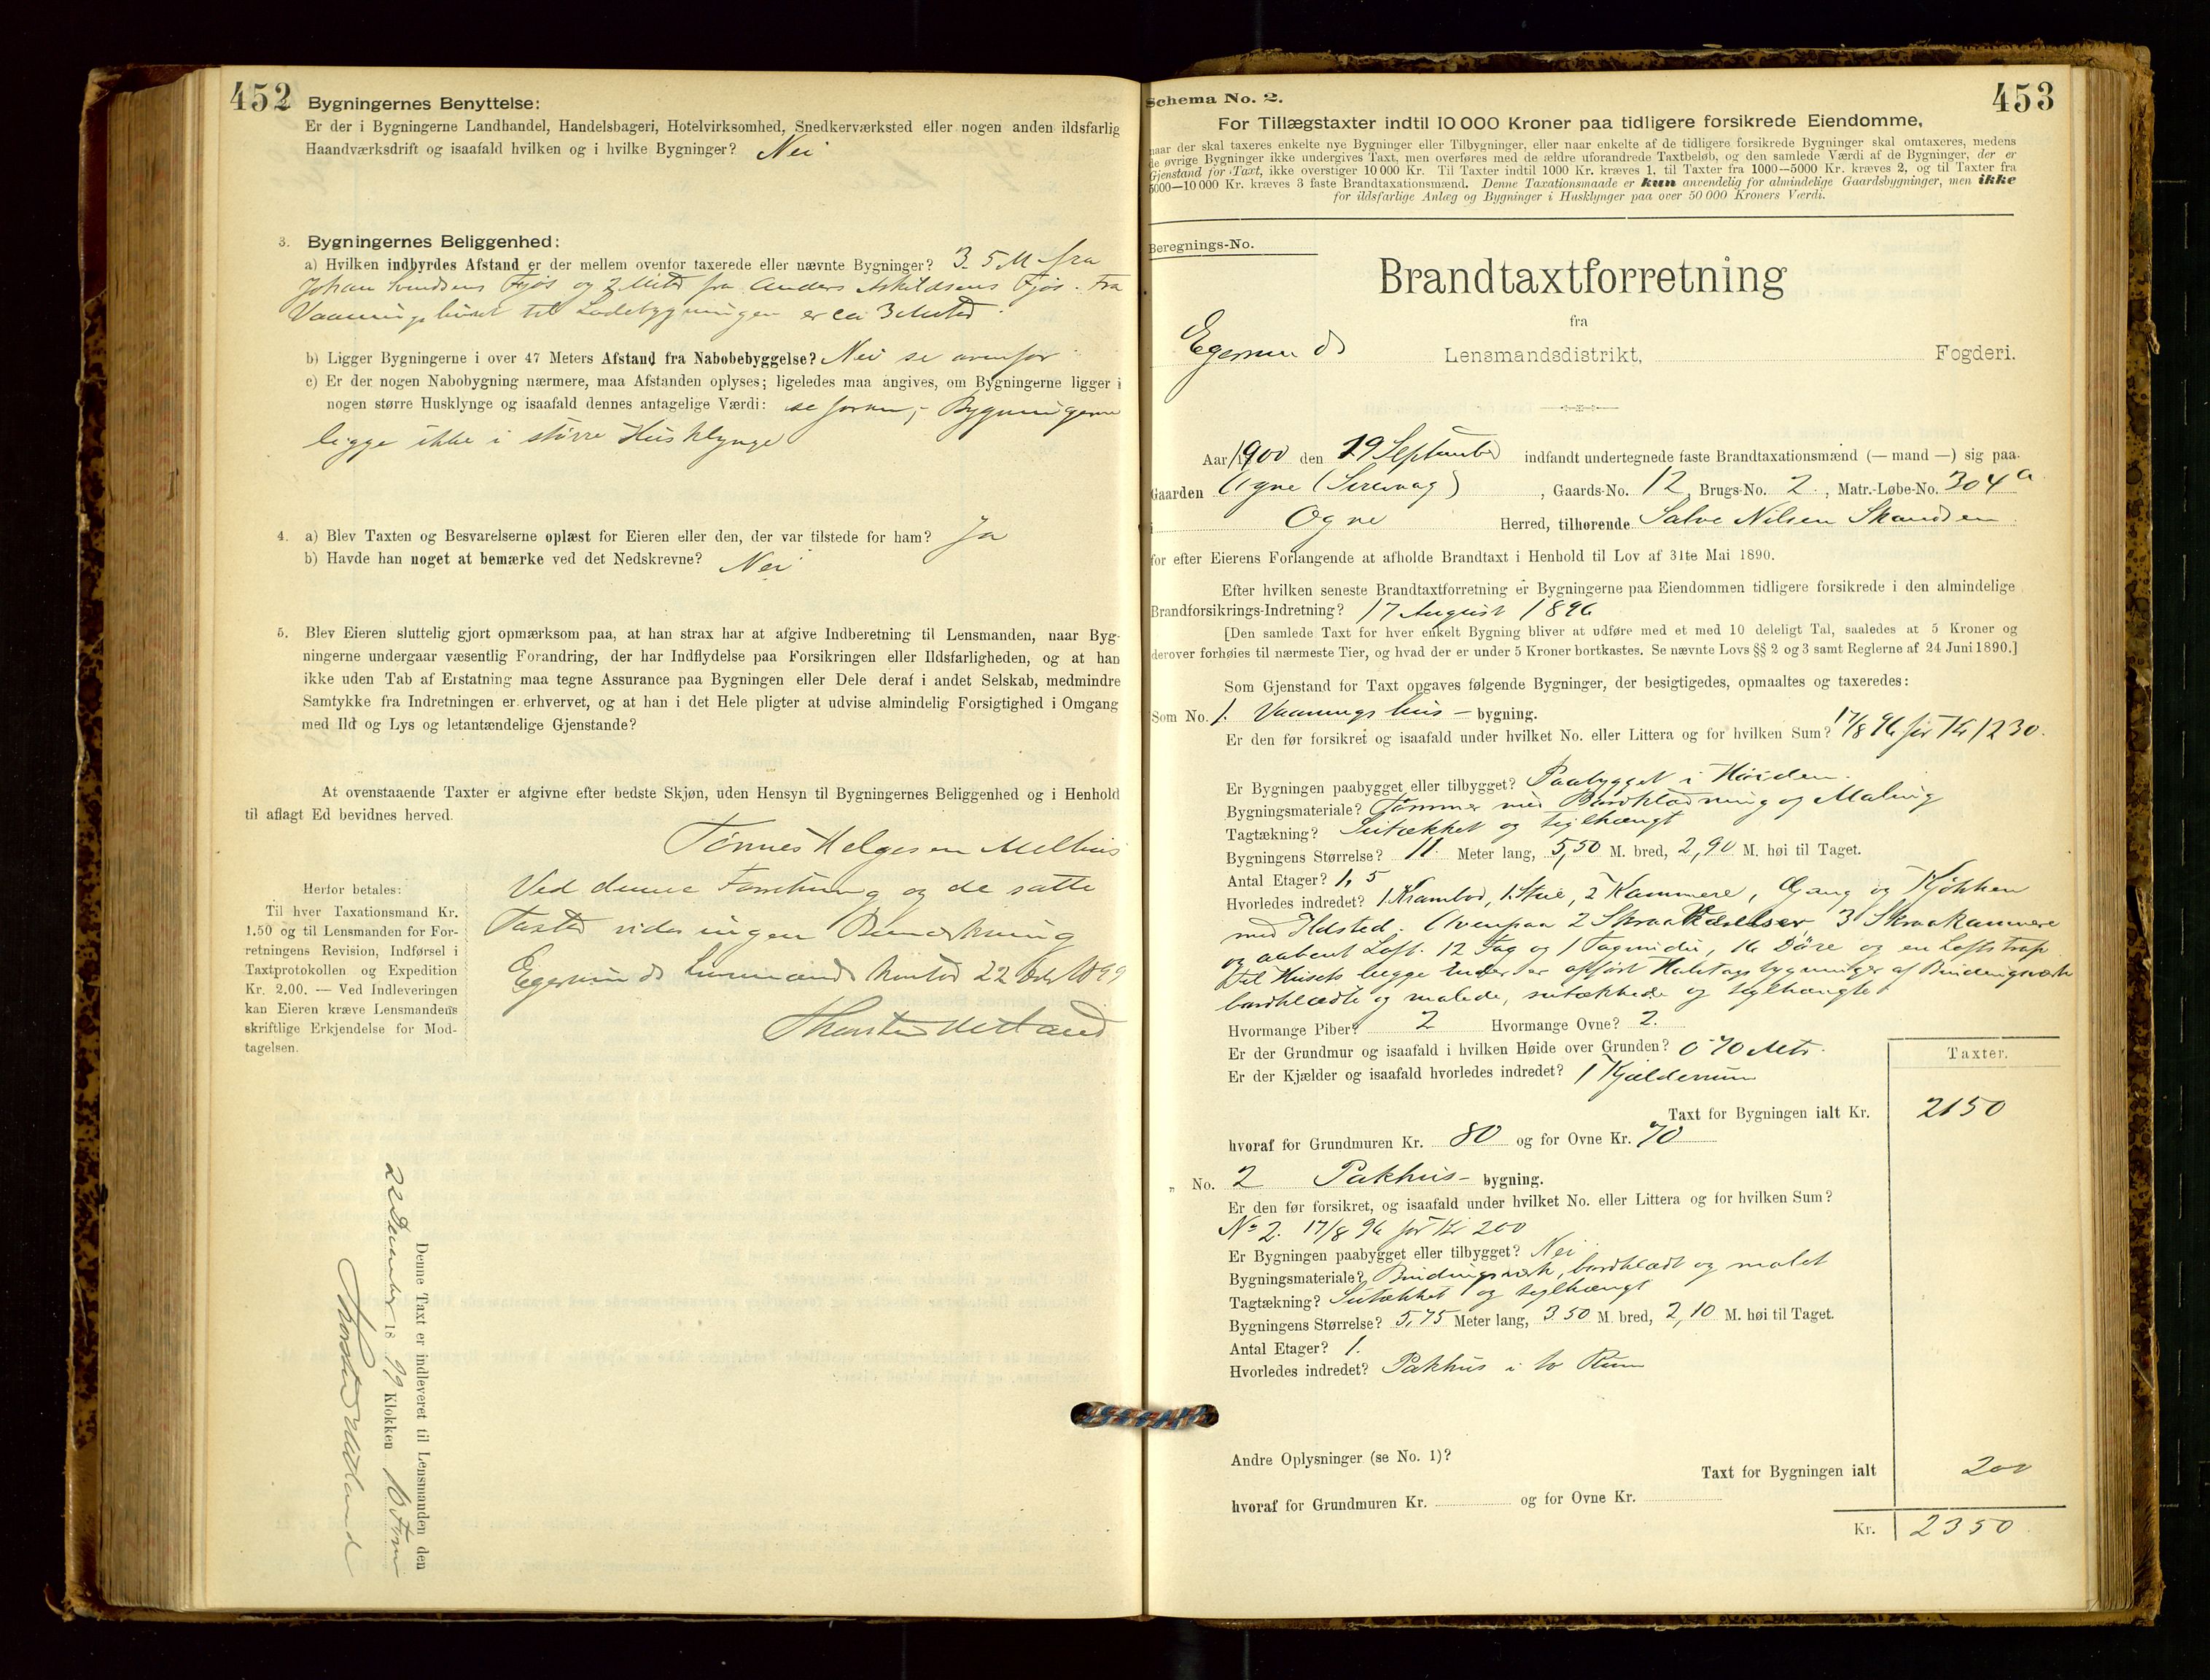 452
Bygningernes Benyttelse:
Er der i Bygningerne Landhandel, Handelsbageri, Hotelvirksomhed, Snedkerværksted eller nogen anden ildsfarlig
Haandværksdrift og isaafald hvilken og i hvilke Bygninger? Nei
3. Bygningernes Beliggenhed:
a) Hvilken indbyrdes Afstand er der mellem ovenfor taxerede eller nævnte Bygninger? 3.5 M fra
Johan Svendsens Fjøs og 2 Meter fra Anders Askildsens Fjøs. Fra
Vaaningshuset til Ladebygningen er ca 3 Meter.
b) Ligger Bygningerne i over 47 Meters Afstand fra Nabobebyggelse? Nei se ovenfor
c) Er der nogen Nabobygning nærmere, maa Afstanden oplyses; ligeledes maa angives, om Bygningerne ligger i
nogen større Husklynge og isaafald dennes antagelige Værdi: se foran, - Bygningerne
ligge ikke i større Husklynge
4. a) Blev Taxten og Besvarelserne oplæst for Eieren eller den, der var tilstede for ham? Ja
b) Havde han noget at bemærke ved det Nedskrevne? Nei
5. Blev Eieren sluttelig gjort opmærksom paa, at han strax har at afgive Indberetning til Lensmanden, naar Byg-
ningerne undergaar væsentlig Forandring, der har Indflydelse paa Forsikringen eller Ildsfarligheden, og at han
ikke uden Tab af Erstatning maa tegne Assurance paa Bygningen eller Dele deraf i andet Selskab, medmindre
Samtykke fra Indretningen er erhvervet, og at han i det Hele pligter at udvise almindelig Forsigtighed i Omgang
med Ild og Lys og letantændelige Gjenstande?
At ovenstaaende Taxter er afgivne efter bedste Skjøn, uden Hensyn til Bygningernes Beliggenhed og i Henhold
til aflagt Ed bevidnes herved.
Tønnes Helgesen Melhus
Ved denne Forretning og de satte
Taxter vides ingen Bemærkning
Egersunds Lensmands Kontor 22 Dcbr 1899
Thorsten Netland
Herfor betales:
Til hver Taxationsmand Kr.
1.50 og til Lensmanden for For-
retningens Revision, Indførsel i
Taxtprotokollen og Expedition
Kr. 2.00. — Ved Indleveringen
kan Eieren kræve Lensmandens
skriftlige Erkjendelse for Mod-
tagelsen.
Denne Taxt er indleveret til Lensmanden den
22 December 1899 Klokken 10 Form
Thorsten Netland
453
Schema No. 2.
For Tillægstaxter indtil 10 000 Kroner paa tidligere forsikrede Eiendomme,
naar der skal taxeres enkelte nye Bygninger eller Tilbygninger, eller naar enkelte af de tidligere forsikrede Bygninger skal omtaxeres, medens
de øvrige Bygninger ikke undergives Taxt, men overføres med de ældre uforandrede Taxtbeløb, og den samlede Værdi af de Bygninger, der er
Gjenstand for Taxt, ikke overstiger 10 000 Kr. Til Taxter indtil 1000 Kr. kræves 1, til Taxter fra 1000—5000 Kr. kræves 2, og til Taxter fra
5000—10 000 Kr. kræves 3 faste Brandtaxationsmænd. Denne Taxationsmaade er kun anvendelig for almindelige Gaardsbygninger, men ikke
for ildsfarlige Anlæg og Bygninger i Husklynger paa over 50 000 Kroners Værdi.
Beregnings-No.
Brandtaxtforretning
fra
Egersunds Lensmandsdistrikt, Fogderi.
Aar 1900 den 29 September indfandt undertegnede faste Brandtaxationsmænd (— mand —) sig paa
Gaarden Ogne (Sirevag), Gaards-No. 12, Brugs-No. 2, Matr.-Løbe-No. 304a
i Ogne Herred, tilhørende Salve Nilsen
for efter Eierens Forlangende at afholde Brandtaxt i Henhold til Lov af 31te Mai 1890.
Efter hvilken seneste Brandtaxtforretning er Bygningerne paa Eiendommen tidligere forsikrede i den almindelige
Brandforsikrings-Indretning? 17 August 1896
[Den samlede Taxt for hver enkelt Bygning bliver at udføre med et med 10 deleligt Tal, saaledes at 5 Kroner og
derover forhøies til nærmeste Tier, og hvad der er under 5 Kroner bortkastes. Se nævnte Lovs §§ 2 og 3 samt Reglerne af 24 Juni 1890.]
Som Gjenstand for Taxt opgaves følgende Bygninger, der besigtigedes, opmaaltes og taxeredes:
Som No. 1. Vaaningshus — bygning.
Er den før forsikret og isaafald under hvilket No. eller Littera og for hvilken Sum? 17/8 96 for Kr 1230.
Er Bygningen paabygget eller tilbygget? Paabygget i Høiden.
Bygningsmateriale? Tømmer med Bordklædning og Maling
Tagtækning? Sutækket og teglhængt
Bygningens Størrelse? 11. Meter lang, 5,50 M. bred, 2,90 M. høi til Taget.
Antal Etager? 1,5
Hvorledes indret? 1 Krambod, 1 Stue, 2 Kammere, Gang og Kjøkken
med Ildsted. Ovenpaa 2 Skraa, 3 Skraakammere
og aabent Loft. 12 Fag og 1 Fagvindu, 16 Døre og en Loftstrap
Til Husets begge Ender er opført Halvtagsbygninger af Bindingsværk
bordklædte og malede, sutækkede og teglhængte
Hvormange Piber? 2 Hvormange Ovne? 2.
Er der Grundmur og isaafald i hvilken Høide over Grunden? 0.70 Mtr.
Er der Kjælder og isaafald hvorledes indredet? 1 Kjælderrum
Taxter.
Taxt for Bygningen ialt Kr. 2150
hvoraf for Grundmuren Kr. 80 og for Ovne Kr. 70
„ No. 2 Pakhus — bygning.
Er den før forsikret, og isaafald under hvilket No. eller Littera og for hvilken Sum?
No 2. 17/8 96 for Kr 200
Er Bygningen paabygget eller tilbygget? Nei
Bygningsmateriale? Bindingsværk, bordklædt og malet
Tagtækning? Sutækket og teglhængt
Bygningens Størrelse? 5,75 Meter lang, 3.50 M. bred, 2,10 M. høi til Taget.
Antal Etager? 1.
Hvorledes indredet? Pakhus i to Rum
Andre Oplysninger (se No. 1)?
Taxt for Bygningen ialt 200
hvoraf for Grundmuren Kr. og for Ovne Kr.
Kr. 2350